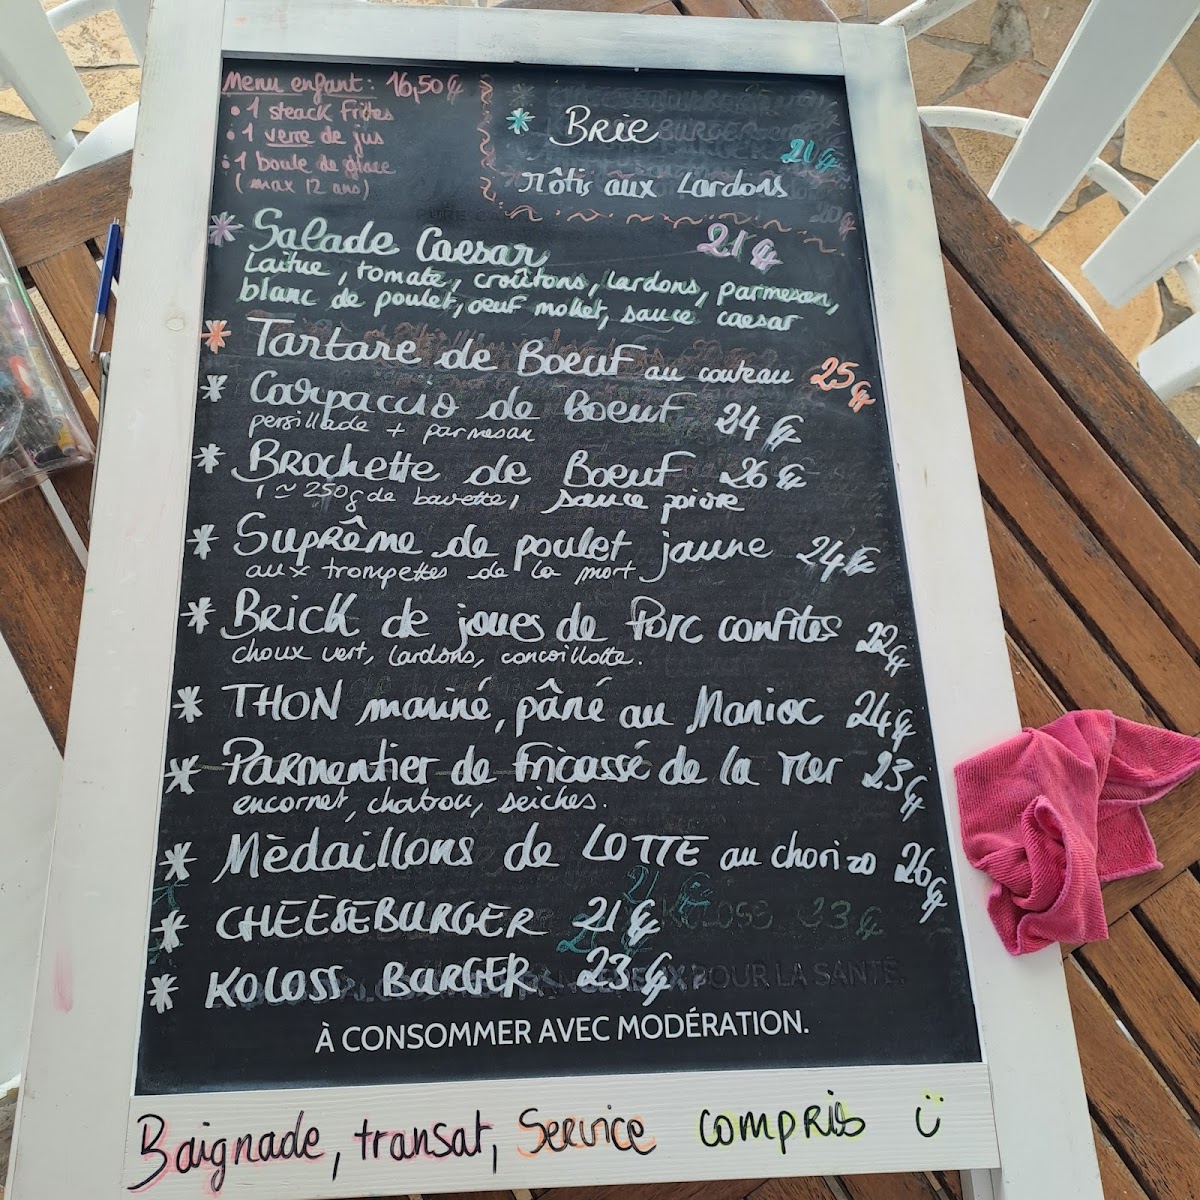 Menu enfant: 16,50€
• 1 steack frites
• 1 verre de jus
• 1 boule de glace
( max 12 ans)
* BRIE 21€
rôtis aux Lardons
* Salade Caesar 21€
Laitue, tomate, croûtons, lardons, parmesan,
blanc de poulet, oeuf mollet, sauce caesar
* Tartare de Boeuf au couteau 25€
* Carpaccio de Boeuf 24€
persillade + parmesan
* Brochette de Boeuf 26€
, ≈ 250g de bavette, sauce poivre
* Suprême de poulet jaune 24€
aux trompettes de la mort
* Brick de joues de Porc confites 22€
choux vert, lardons, concoillotte.
* THON mariné, pâné au Manioc 24€
* Parmentier de Fricassé de la Mer 23€
encornet, chatrou, seiches.
* Mèdaillons de LOTTE au chorizo 26€
* CHEESEBURGER 21€
* KOLOSS BURGER 23€
POUR LA SANTÉ.
À CONSOMMER AVEC MODÉRATION.
Baignade, transat, Service compris